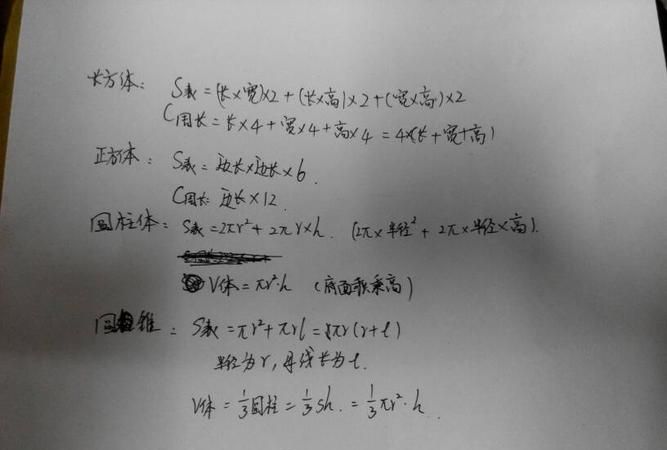 长方体: S表=(长×宽)×2+(长×高)×2+(宽×高)×2
C周长=长×4+宽×4+高×4=4×(长+宽+高)
正方体: S表=边长×边长×6.
C周长: 边长×12.
圆柱体: S表=2πr²+2πr×h. (2π×半径²+2π×半径×高).
V体=πr²·h (底面积乘高)
圆锥: S表=πr²+πrl=πr(r+l)
半径为r,母线长为l.
V体=1/3圆柱=1/3Sh.=1/3πr²·h.